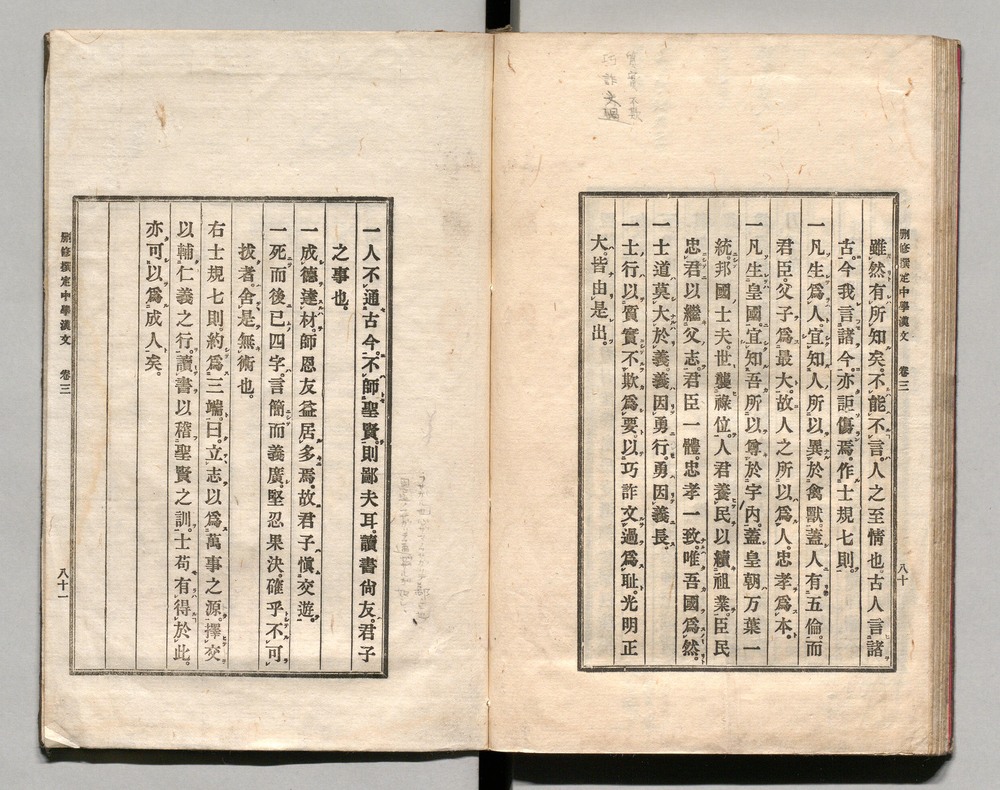 刪修撰定中學漢文 卷三 八十
雖然有所知矣。不能不言。人之至情也。古人言諸
古。今我言諸今。亦詎傷焉。作士規七則。
一凡生爲人。宜知人所以異於禽獸。蓋人有五倫。而
君臣父子爲最大。故人之所以爲人。忠孝爲本。
一凡生皇國。宜知吾所以尊於宇內。蓋皇朝万葉一
統。邦國士夫。世襲祿位。人君養民以續祖業。臣民
忠君以繼父志。君臣一體。忠孝一致。唯吾國爲然。
一士道莫大於義。義因勇行。勇因義長。
一士行以質實不欺爲要。以巧詐文過爲恥。光明正
大。皆由是出。
一人不通古今。不師聖賢。則鄙夫耳。讀書尙友。君子
之事也。
一成德達材。師恩友益居多焉。故君子愼交遊。
一死而後已四字。言簡而義廣。堅忍果決。確乎不可
拔者。舍是無術也。
右士規七則。約爲三端。曰。立志以爲萬事之源。擇交
以輔仁義之行。讀書以稽聖賢之訓。士苟有得於此。
亦可以爲成人矣。
刪修撰定中學漢文 卷三 八十一